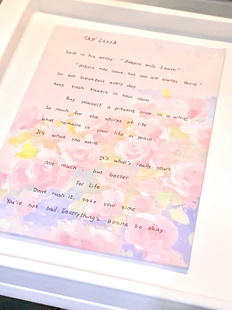 Said in his song, "Others will leave"
"Others may leave, but you are always there"
So eat breakfast every day
keep fresh flowers in your room
Buy yourself a present once in a while
So much for the secret of life
What remains is your life in peace
It's what you have
It's what's really yours
Not much but better
For life
Don't rush it. Take your time
You're not bad. Everything's gonna be okay.